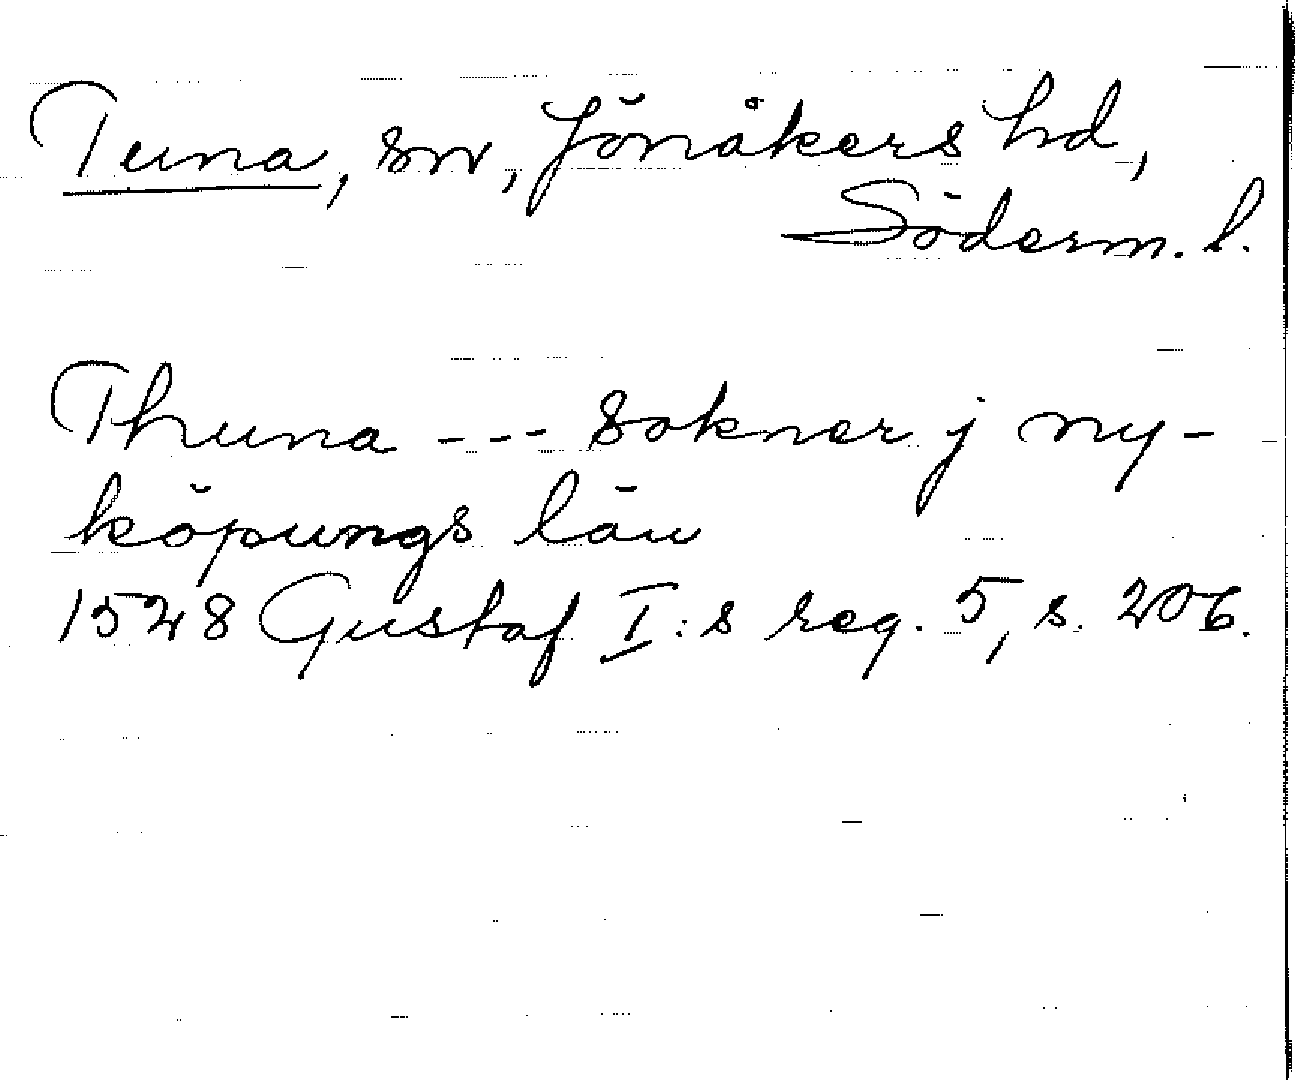 Tuna, sn, Jönåkers hd,
Söderm. l.
Thuna --- Sokner j ny-
köpungs län
1528 Gustaf I:s reg. 5, s. 206.